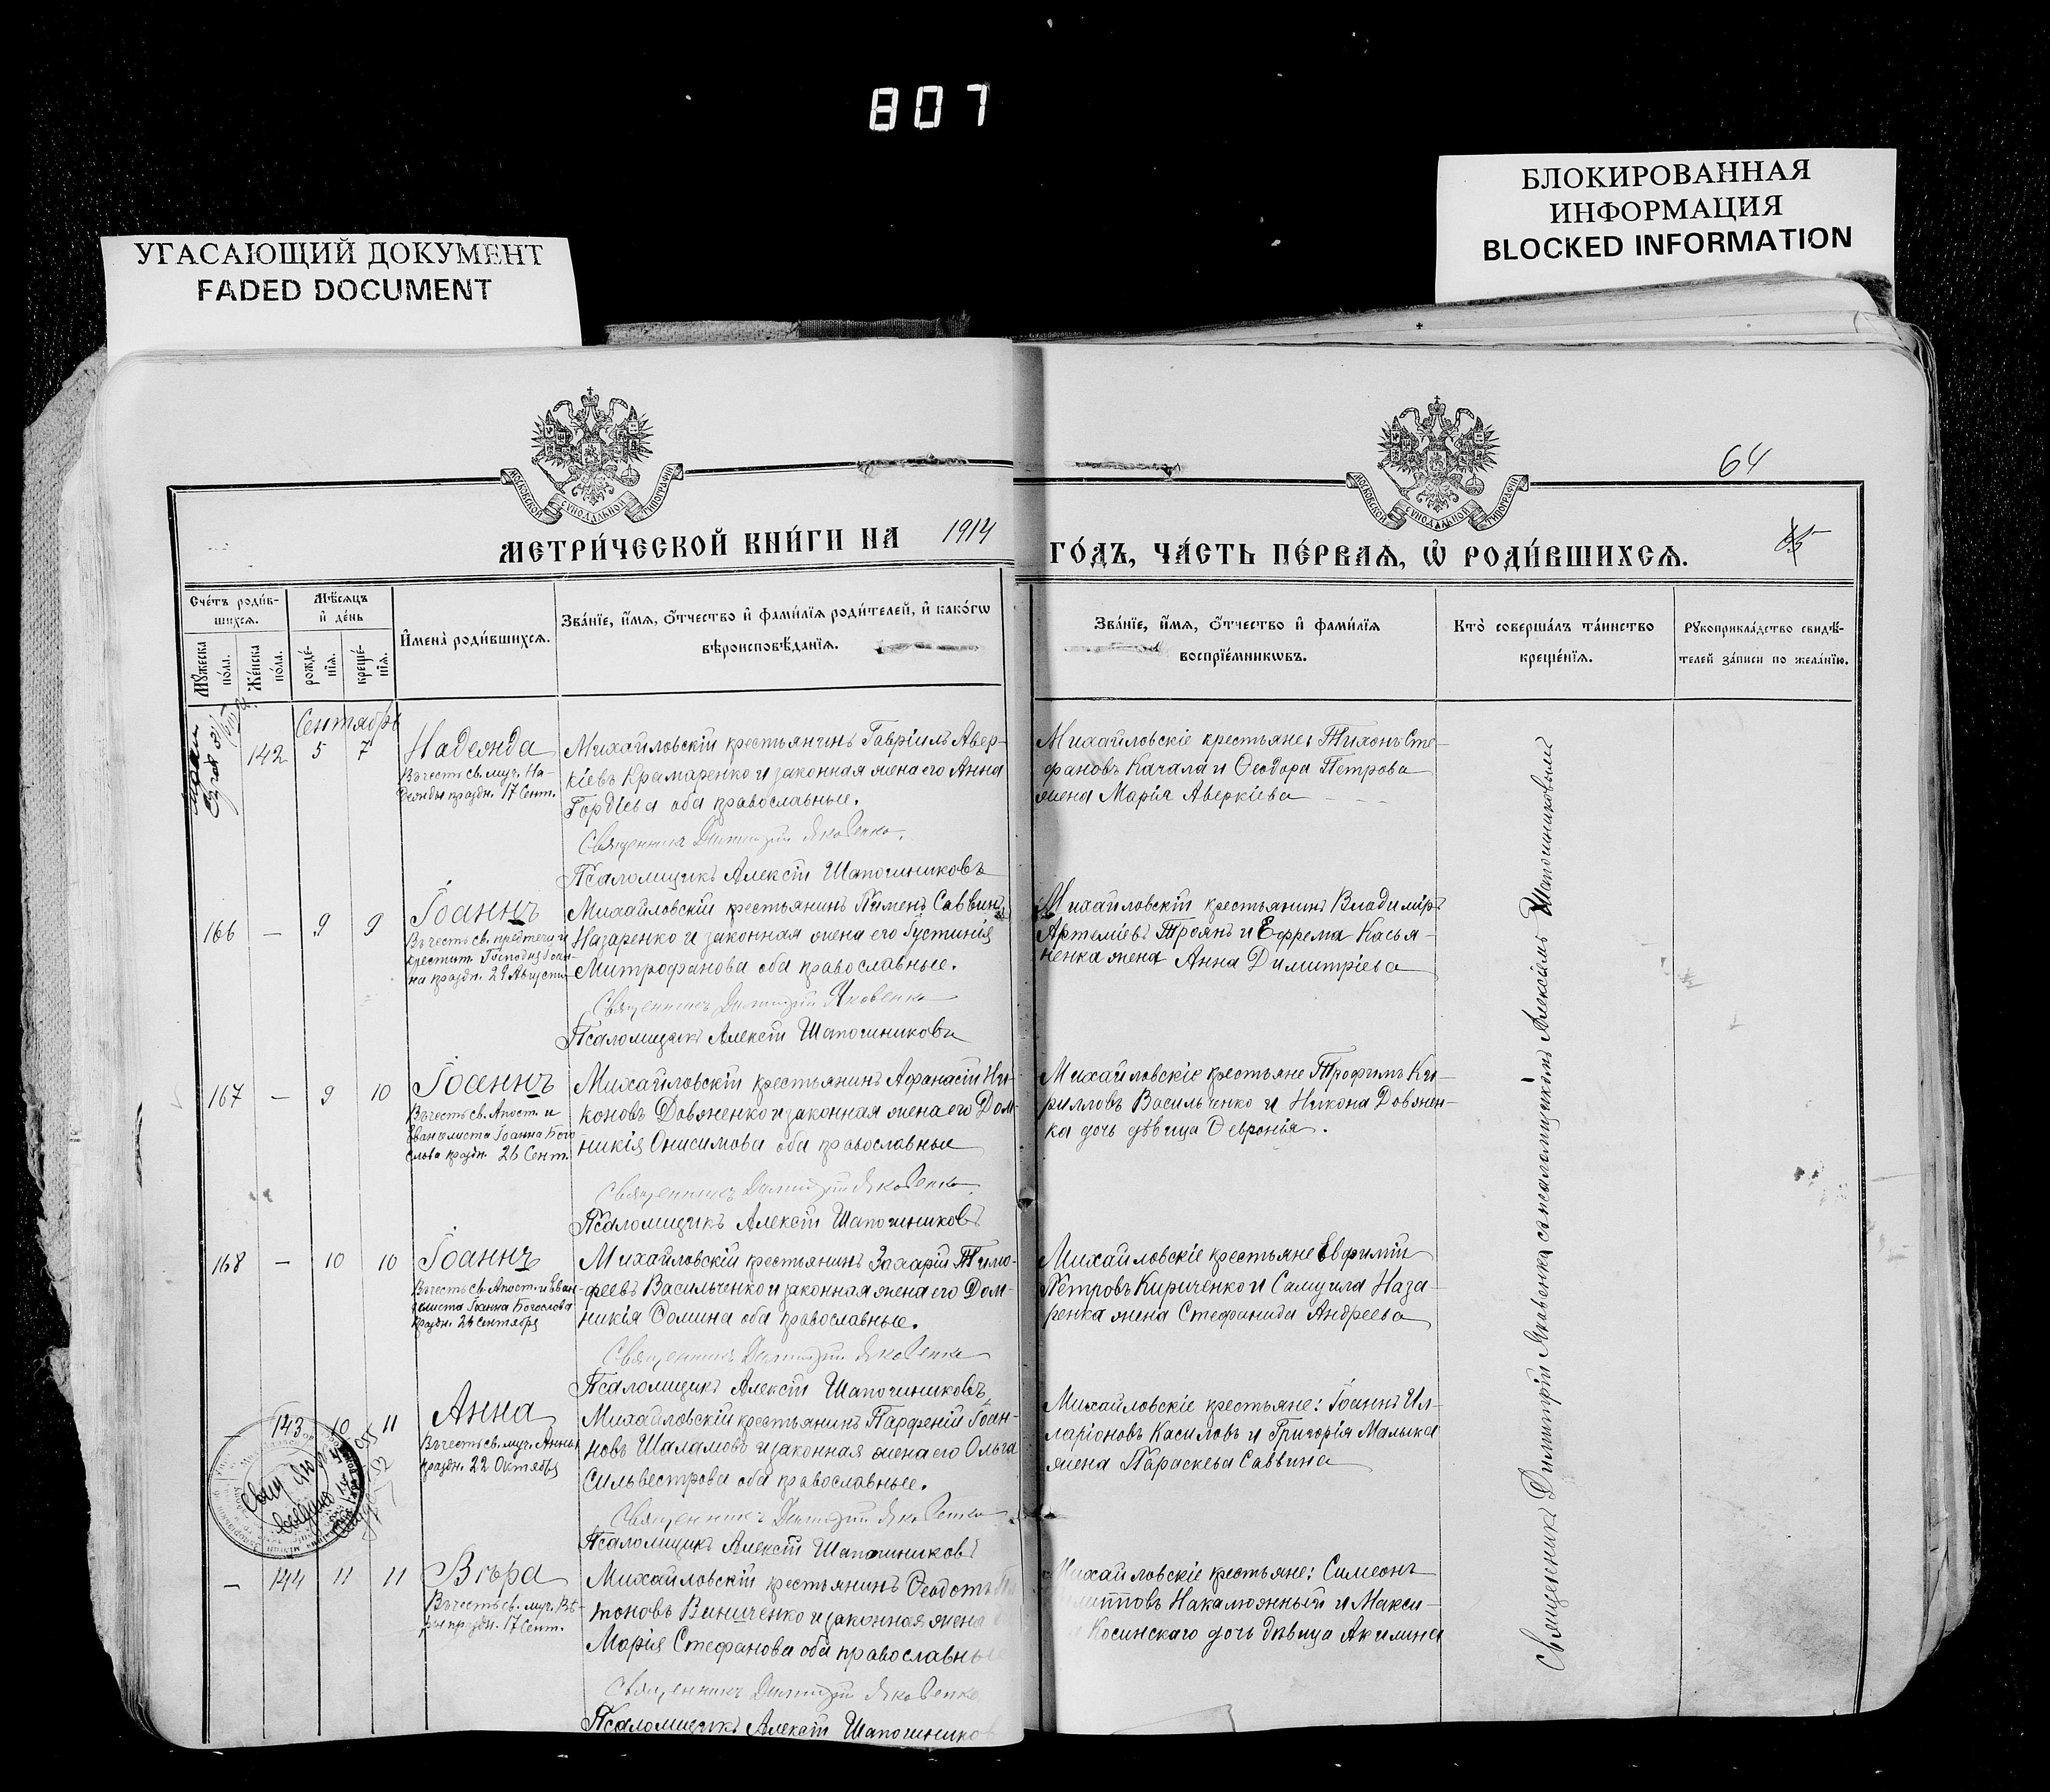 807
УГАСАЮЩИЙ ДОКУМЕНТ
FADED DOCUMENT
БЛОКИРОВАННАЯ
ИНФОРМАЦИЯ
BLOCKED INFORMATION
МОСКОВСКОЙ СѴНОДАЛЬНОЙ ТИПОГРАФІИ
МОСКОВСКОЙ СѴНОДАЛЬНОЙ ТИПОГРАФІИ
64
МЕТРИ́ЧЕСКОЙ КНИ́ГИ НА 1914 ГО́ДЪ, ЧА́СТЬ ПЕ́РВАѦ, Ѡ҆ РОДИ́ВШИХСѦ.
Сче́тъ роди́в-
шихсѧ.
Мꙋ́жеска
по́ла.
Же́нска
по́ла.
Мѣ́сѧцъ
и҆ де́нь
рожде́-
нїѧ.
креще́-
нїѧ.
И҆мена̀ роди́вшихсѧ.
Зва́нїе, и҆́мѧ, ѻ҆́тчество и҆ фами́лїѧ роди́телей, и҆ како́гѡ
вѣроисповѣ́данїѧ.
Зва́нїе, и҆́мѧ, ѻ҆́тчество и҆ фами́лїѧ
воспрїе́мникѡвъ.
Кто̀ соверша́лъ та́инство
креще́нїѧ.
Рꙋкоприкла́дство свидѣ́-
телей за́писи по жела́нїю.
Сентябрь
142 5 7 Надежда
Въ честь св. муч. На-
дежды праздн. 17 Сент.
Михайловскій крестьянинъ Гавріилъ Авер-
кіевъ Крамаренко и законная жена его Анна
Гордіева оба православные.
Священникъ Димитрій Яковенко.
Псаломщикъ Алексій Шапошниковъ
Михайловскіе крестьяне: Тихонъ Сте-
фановъ Качала и Ѳеодора Петрова
жена Марія Аверкіева
166 — 9 9 Іоаннъ
Въ честь св. предтечи и
крестит. Господня Іоан-
на праздн. 29 Августа
Михайловскій крестьянинъ Пименъ Саввинъ
Назаренко и законная жена его Іустинія
Митрофанова оба православные.
Священникъ Димитрій Яковенко
Псаломщикъ Алексій Шапошниковъ
Михайловскій крестьянинъ Владиміръ
Артеміевъ Троянъ и Ефрема Касья-
ненка жена Анна Димитріева
167 — 9 10 Іоаннъ
Въ честь св. Апост. и
Евангелиста Іоанна Бого
слова праздн. 26 Сент.
Михайловскій крестьянинъ Афанасій Ни-
коновъ Довженко и законная жена его Дом-
никія Онисимова оба православные
Священникъ Димитрій Яковенко
Псаломщикъ Алексій Шапошниковъ
Михайловскіе крестьяне Трофимъ Ки-
рилловъ Васильченко и Никона Довжен-
ка дочь дѣвица Ѳевронія.
168 — 10 10 Іоаннъ
Въ честь св. Апост. и Еван-
гелиста Іоанна Богослова
праздн. 26 Сентября
Михайловскій крестьянинъ Захарій Тимо-
феевъ Васильченко и законная жена его Дом-
никія Ѳомина оба православные.
Священникъ Димитрій Яковенко
Псаломщикъ Алексій Шапошниковъ
Михайловскіе крестьяне Евфимій
Петровъ Кириченко и Самуила Наза-
ренка жена Стефанида Андреева
— 143 10 11 Анна
Въ честь св. муч. Анны
праздн. 22 Октября
Михайловскій крестьянинъ Парфеній Іоан-
новъ Шаламовъ и законная жена его Ольга
Сильвестрова оба православные.
Священникъ Димитрій Яковенко
Псаломщикъ Алексій Шапошниковъ
Михайловскіе крестьяне: Іоаннъ Ил-
ларіоновъ Касиловъ и Григорія Малыка
жена Параскева Саввина
— 144 11 11 Вѣра
Въ честь св. муч. Вѣ-
ры праздн. 17 Сент.
Михайловскій крестьянинъ Ѳеодотъ
тоновъ Виниченко и законная жена
Марія Стефанова оба православные
Священникъ Димитрій Яковенко
Псаломщикъ Алексій Шапошников
Михайловскіе крестьяне: Симеонъ
Накалюжный и Макси-
Косинскаго дочь дѣвица Акилина
Священникъ Димитрій Яковенко съ псаломщикомъ Алексіемъ Шапошниковымъ